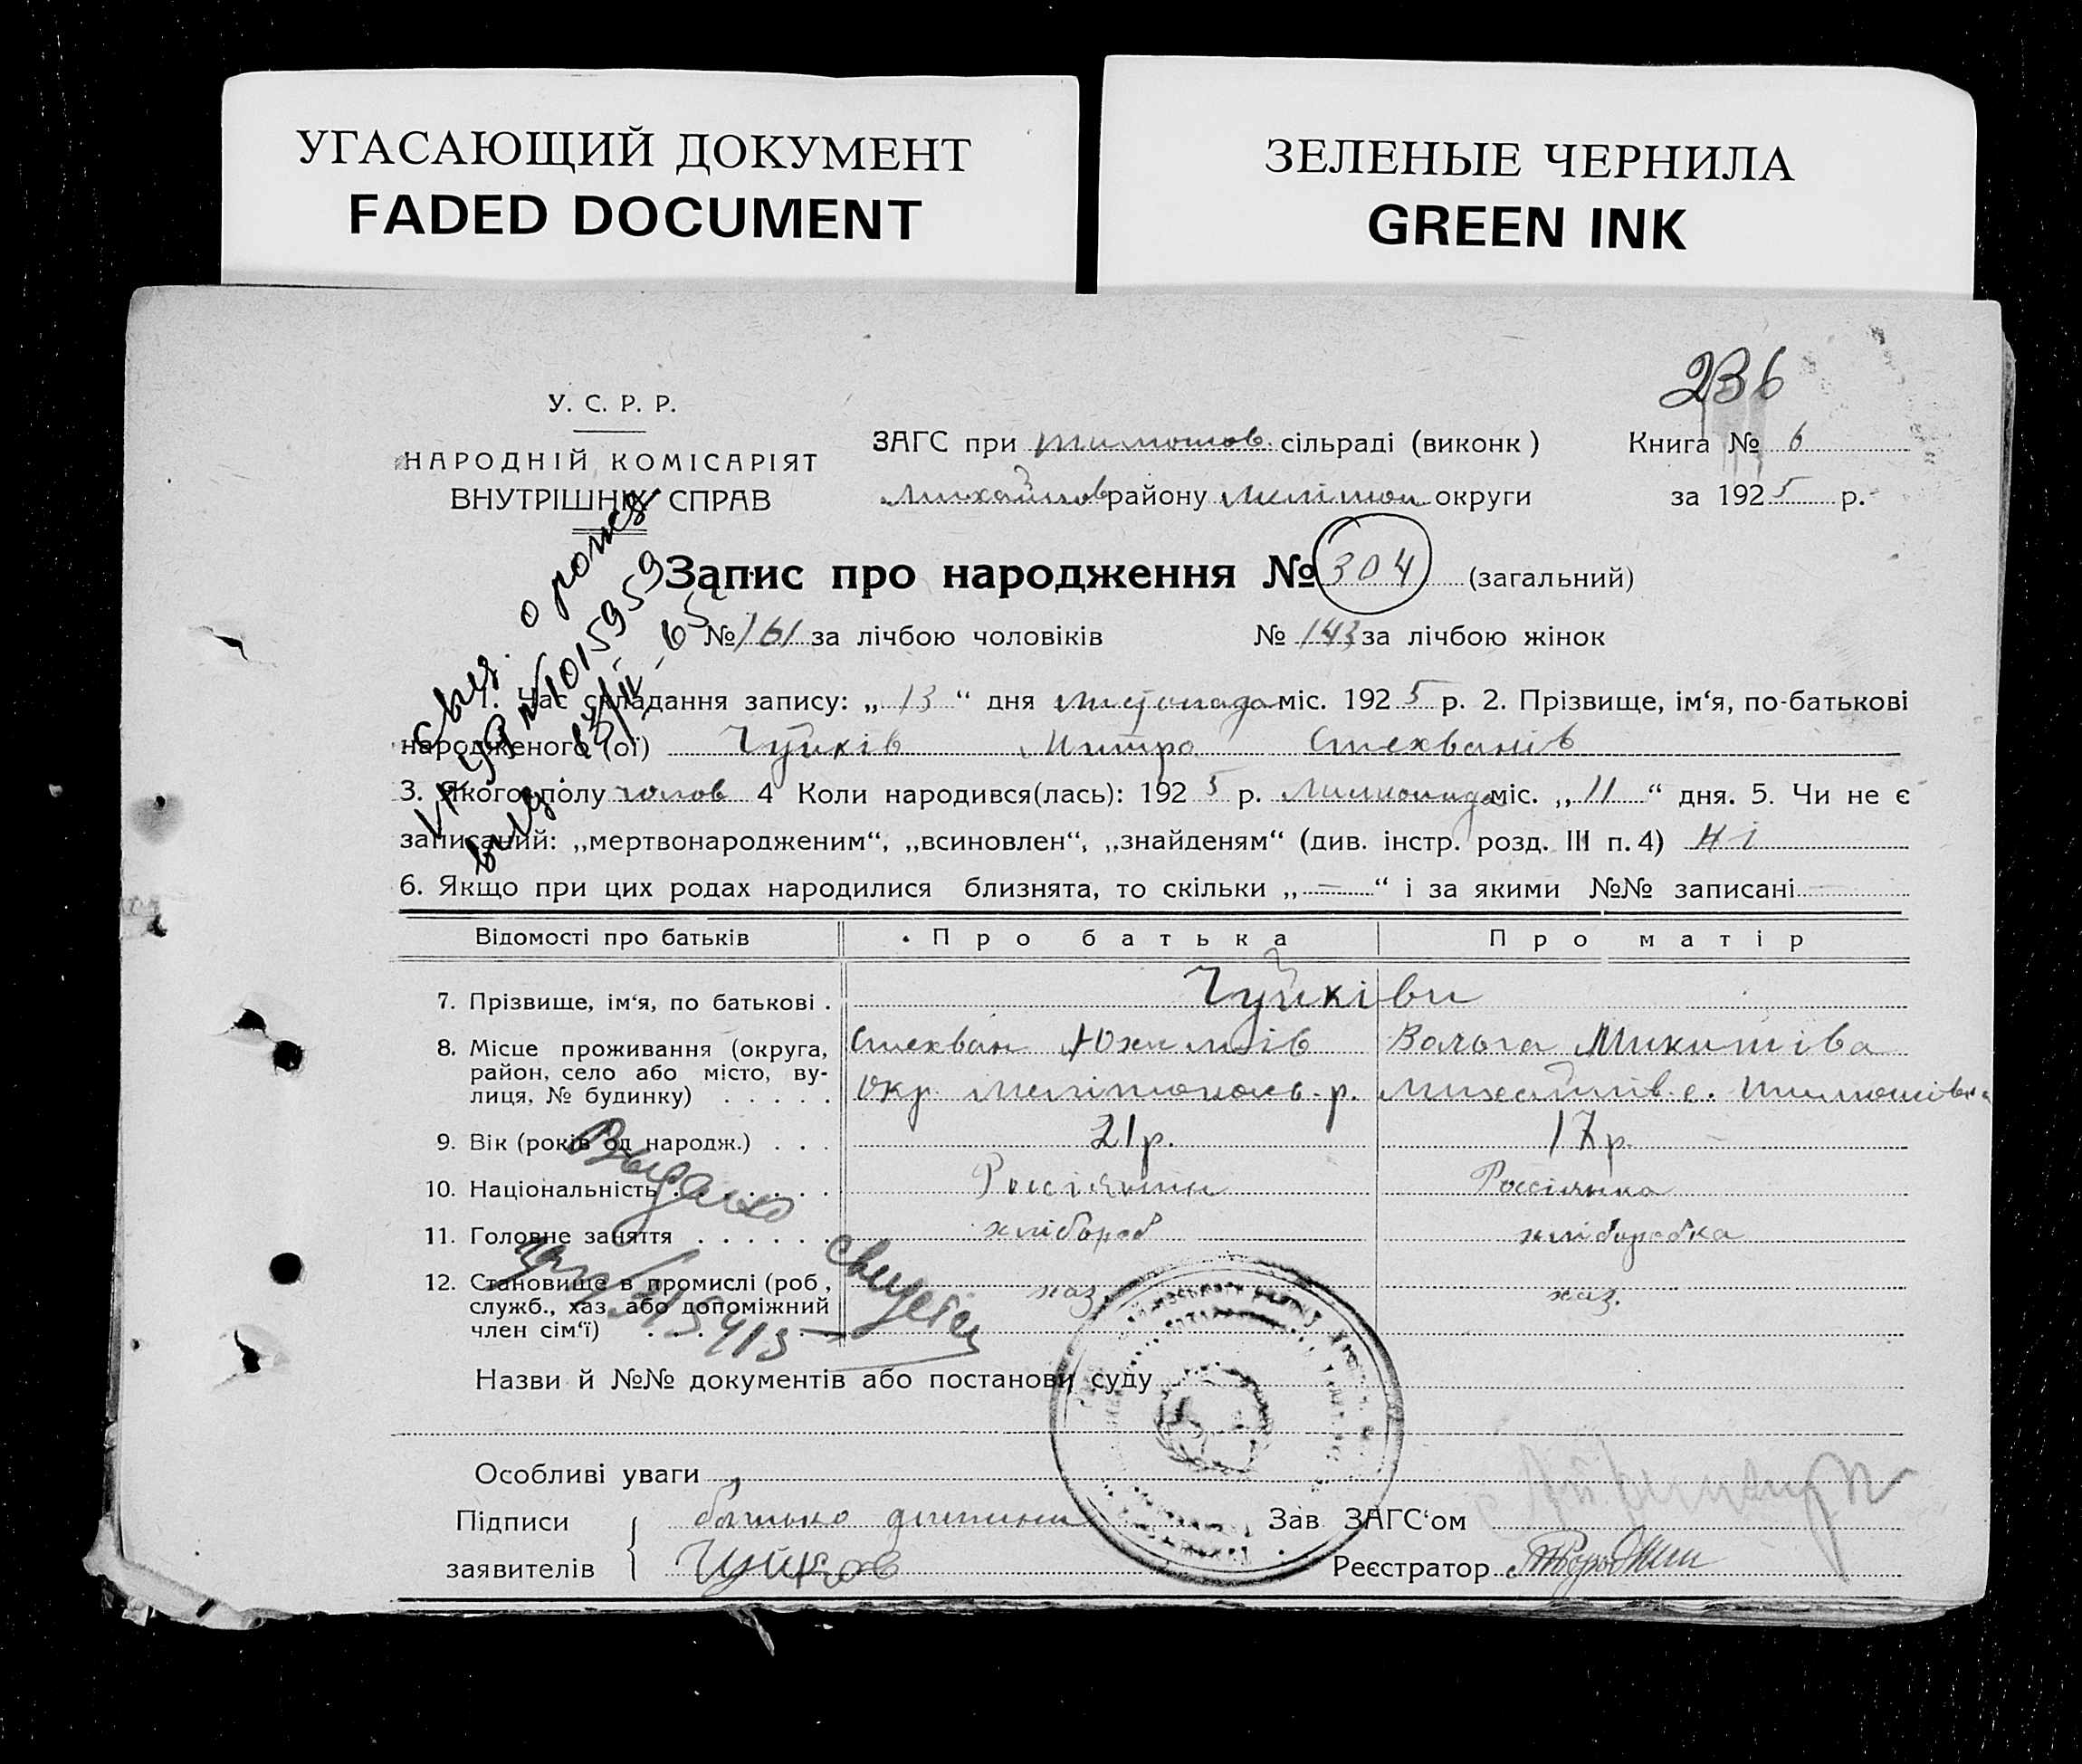 УГАСАЮЩИЙ ДОКУМЕНТ
FADED DOCUMENT
ЗЕЛЕНЫЕ ЧЕРНИЛА
GREEN INK
236
У. С. Р. Р.
НАРОДНІЙ КОМІСАРІЯТ
ВНУТРІШНІХ СПРАВ
ЗАГС при тимошов. сільраді (виконк)
Книга № 6
Михайлов району Мелітоп округи
за 1925 р.
Запис про народження № 304 (загальний)
№ 161 за лічбою чоловіків № 143 за лічбою жінок
1. Час складання запису: „ 13 “ дня листопада міс. 1925 р. 2. Прізвище, ім‘я, по-батькові
народженого (ої) Чуйків Митро Стехванів
3. Якого полу чолов 4 Коли народився(лась): 1925 р. Листопада міс. „ 11 “ дня. 5. Чи не є
записаний: „мертвонародженим“, „всиновлен“, „знайденям“ (див. інстр. розд. III п. 4) Ні
6. Якщо при цих родах народилися близнята, то скільки „ — “ і за якими №№ записані
свид. о рожд
№ 015959
13/II-65
Відомості про батьків Про батька Про матір
7. Прізвище, ім‘я, по батькові . Чуйківи
Стехван Юхимів Вольга Микитіва
8. Місце проживання (округа,
район, село або місто, ву-
лиця, № будинку) . . . . .
Окр. Мелітополь. р. Михайлів. с. Тимошівка
9. Вік (років од народж.) . . . 21 р. 17 р.
10. Національність . . . . . . . Россіянин Россіянка
11. Головне заняття . . . . . . хлібороб хліборобка
12. Становище в промислі (роб.,
служб., хаз. або допоміжний
член сім‘ї) . . . .
хаз. хаз.
Выдано
свидетел
Назви й №№ документів або постанови суду
Особливі уваги
Підписи
заявителів
батько дитини
Чуйков
Зав ЗАГС‘ом
Реєстратор